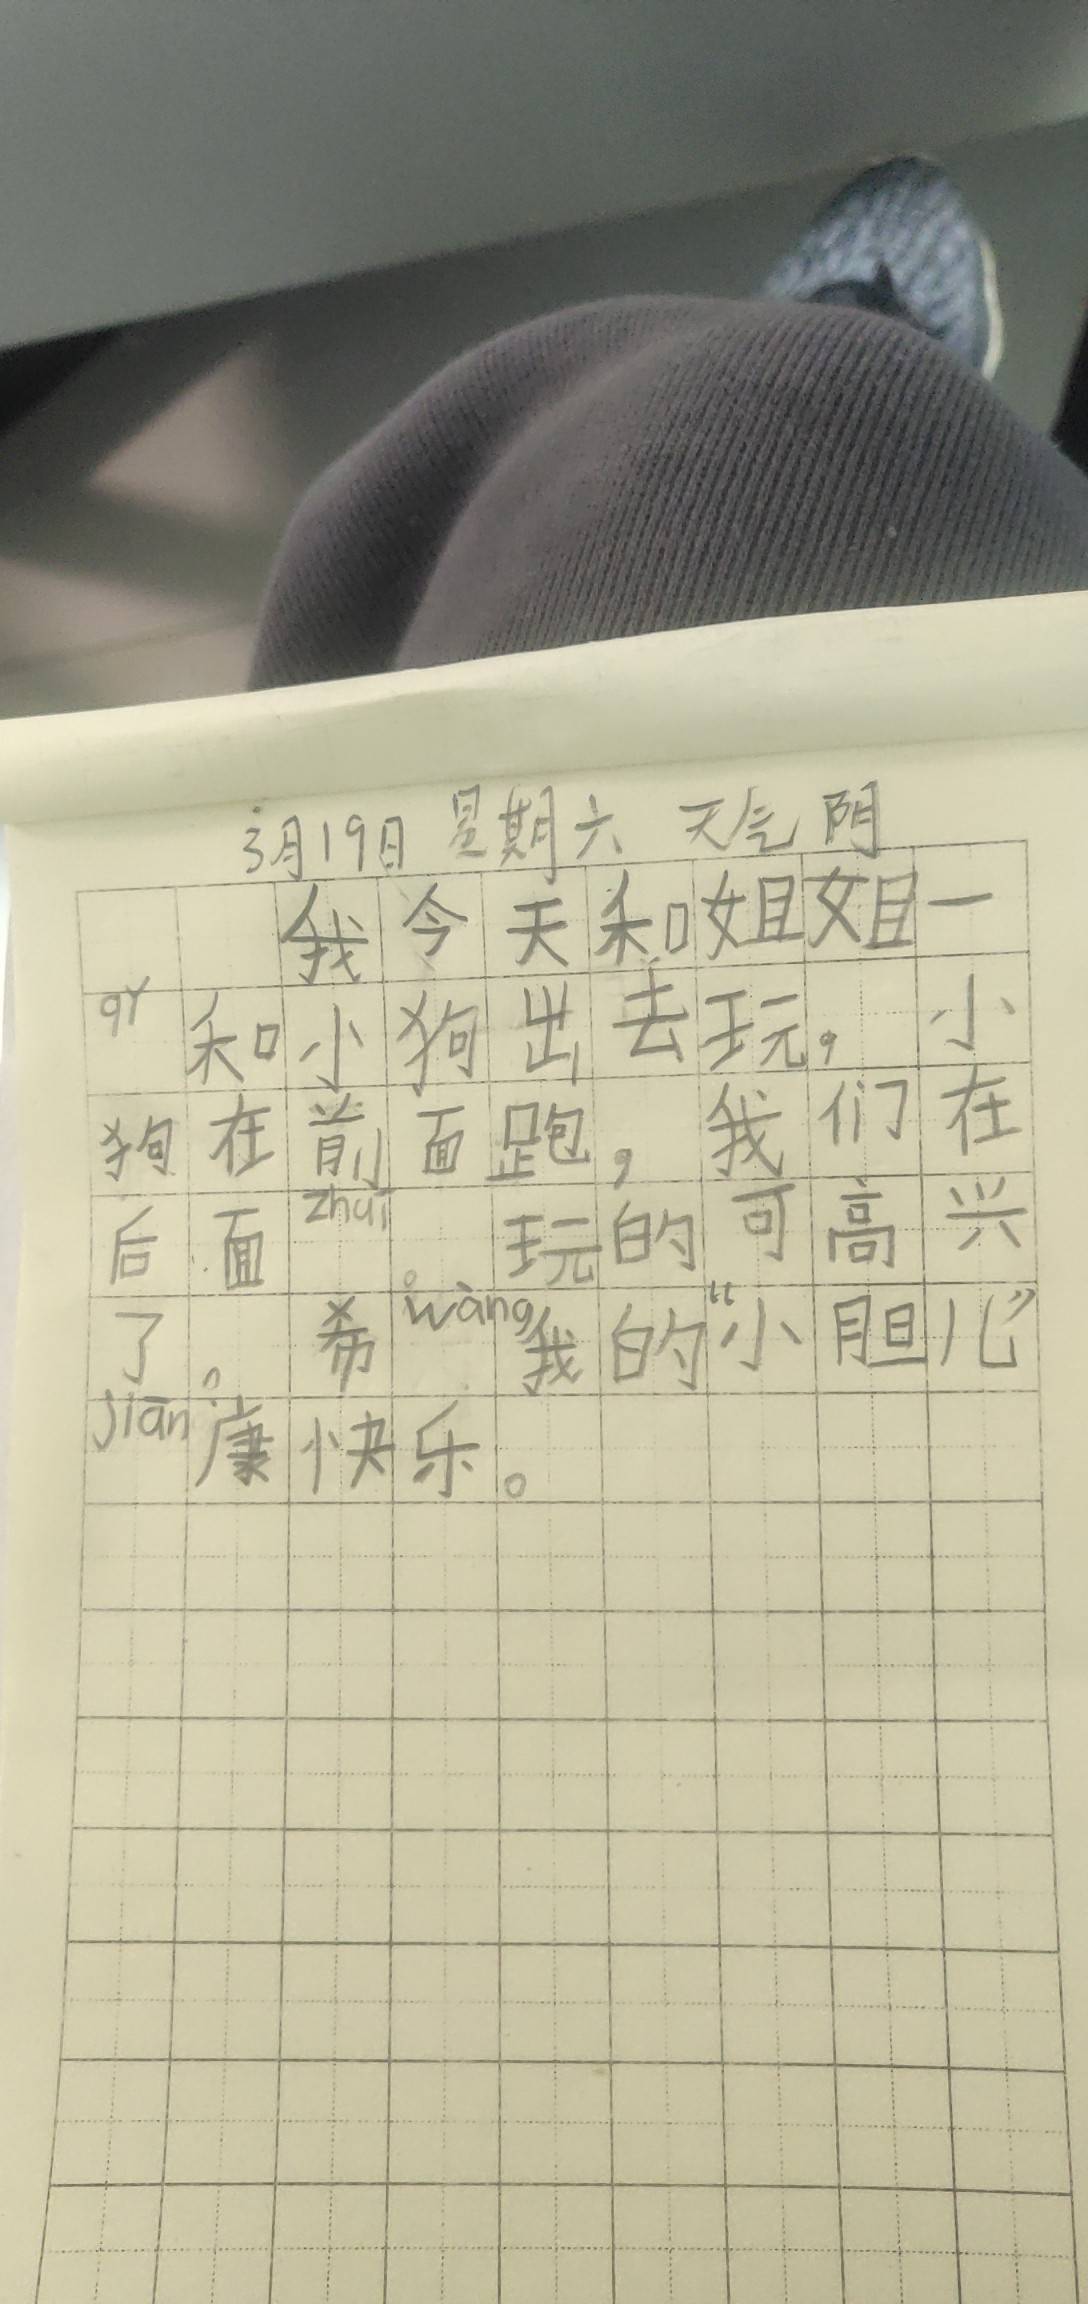 3月19日 星期六 天气 阴
我今天和姐姐一
qǐ和小狗出去玩，小
狗在前面跑，我们在
后面zhuī。玩的可高兴
了。希wàng我的“小胆儿”
jiàn康快乐。